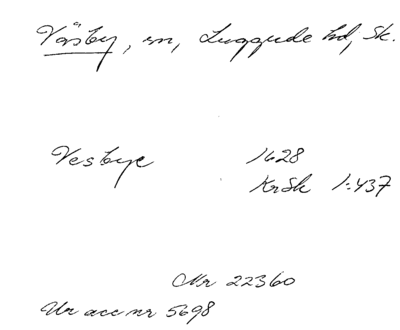 Väsby, sn, Luggude hd, Sk.
Vesbye 1628
KrSk 1:437
Nr 22360
Ur acc nr 5698